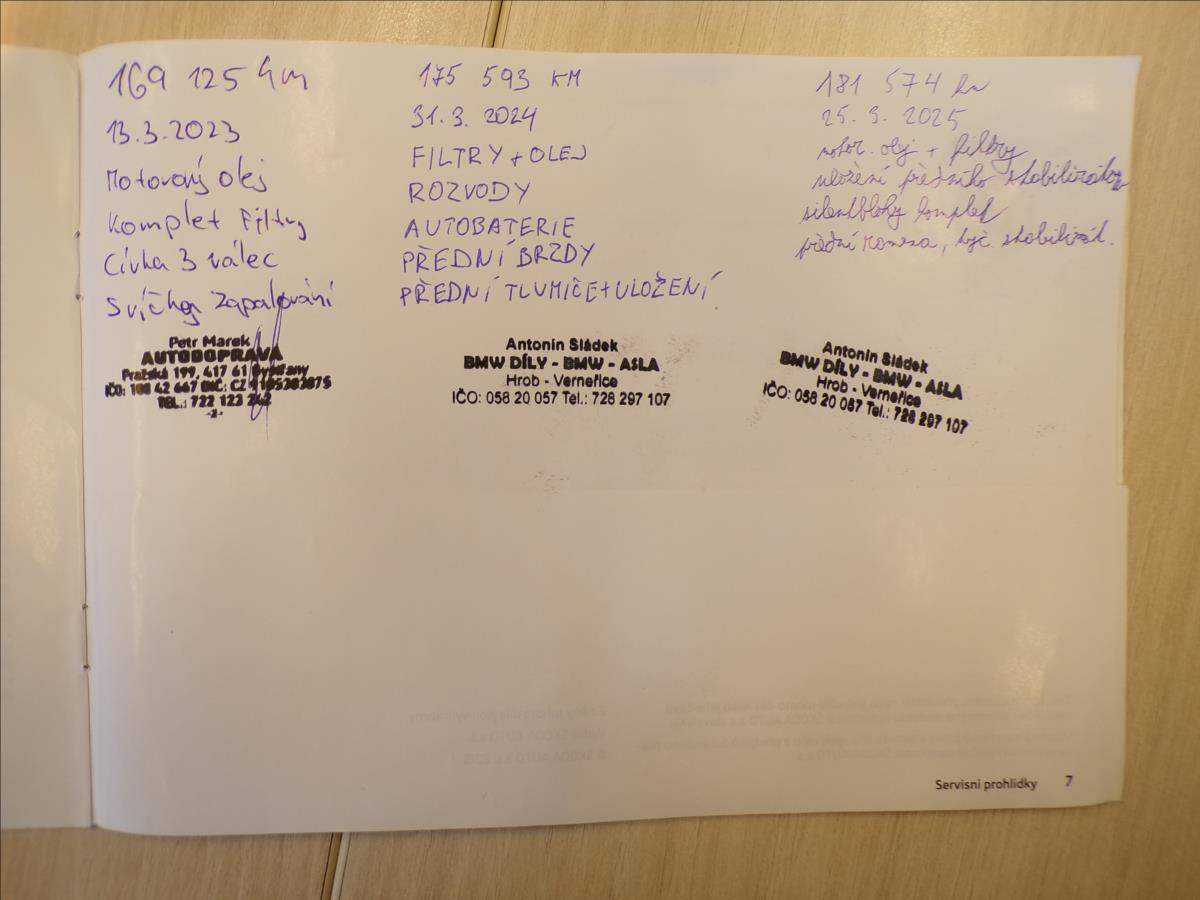 169 125 km
13.3.2023
Motorový olej
Komplet Filtry
Cívka 3 válec
Svíčky zapalování
Petr Marek
AUTODOPRAVA
Pražská 199, 417 61
IČO: 100 42 667 DIČ: CZ
TEL.: 722 123 242
-2-
175 593 KM
31.3. 2024
FILTRY + OLEJ
ROZVODY
AUTOBATERIE
PŘEDNÍ BRZDY
PŘEDNÍ TLUMIČE + ULOŽENÍ
Antonín Sládek
BMW DÍLY - BMW - ASLA
Hrob - Verneřice
IČO: 058 20 057 Tel.: 728 297 107
181 574 km
25. 3. 2025
motor. olej + filtry
uložení předního stabilizátoru
silentbloky komplet
přední ramena, tyč. stabilizát.
Antonín Sládek
BMW DÍLY - BMW - ASLA
Hrob - Verneřice
IČO: 058 20 057 Tel.: 728 297 107
Servisní prohlídky 7